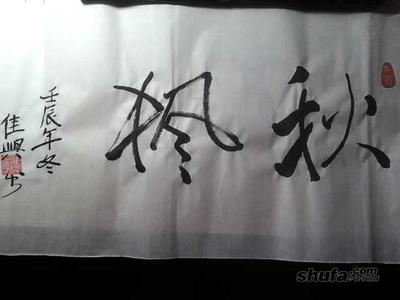 秋楓
壬辰年冬
佳興书
shufa.com